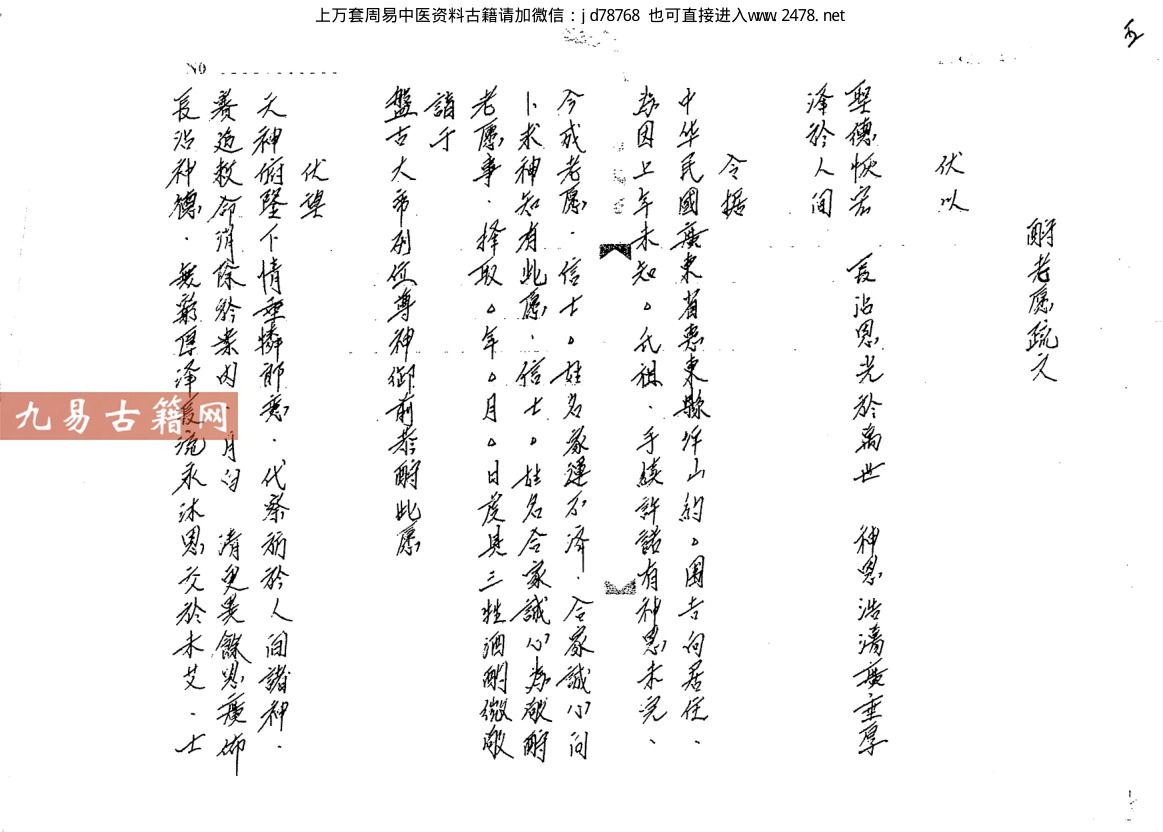 上万套周易中医资料古籍请加微信：jd78768 也可直接进入www.2478.net
五
酬老愿疏文
伏以
聖德恢宏 長沾恩光於萬世 神恩浩蕩廣垂厚
泽於人间
令据
中华民國廣東省惠東縣坪山約。围吉向居住、
為因上年未知。氏祖、手续許諾有神恩未完、
今成老愿．信士。姓名家運不济．合家誠心问
卜求神知有此愿、信士。姓名合家誠心為敬酬
老愿事．择取。年。月。日虔具三牲酒酌微敬
詣于
盤古大帝列位尊神御前恭酬此愿
伏望
天神俯墜下情垂憐鄙意．代察祈於人间諸神．
赛过救命消除於案内．月白 清更異餘恩廣佈
長沾神德．無窮厚泽長流永沐恩文於未艾．士
NO
九易古籍网